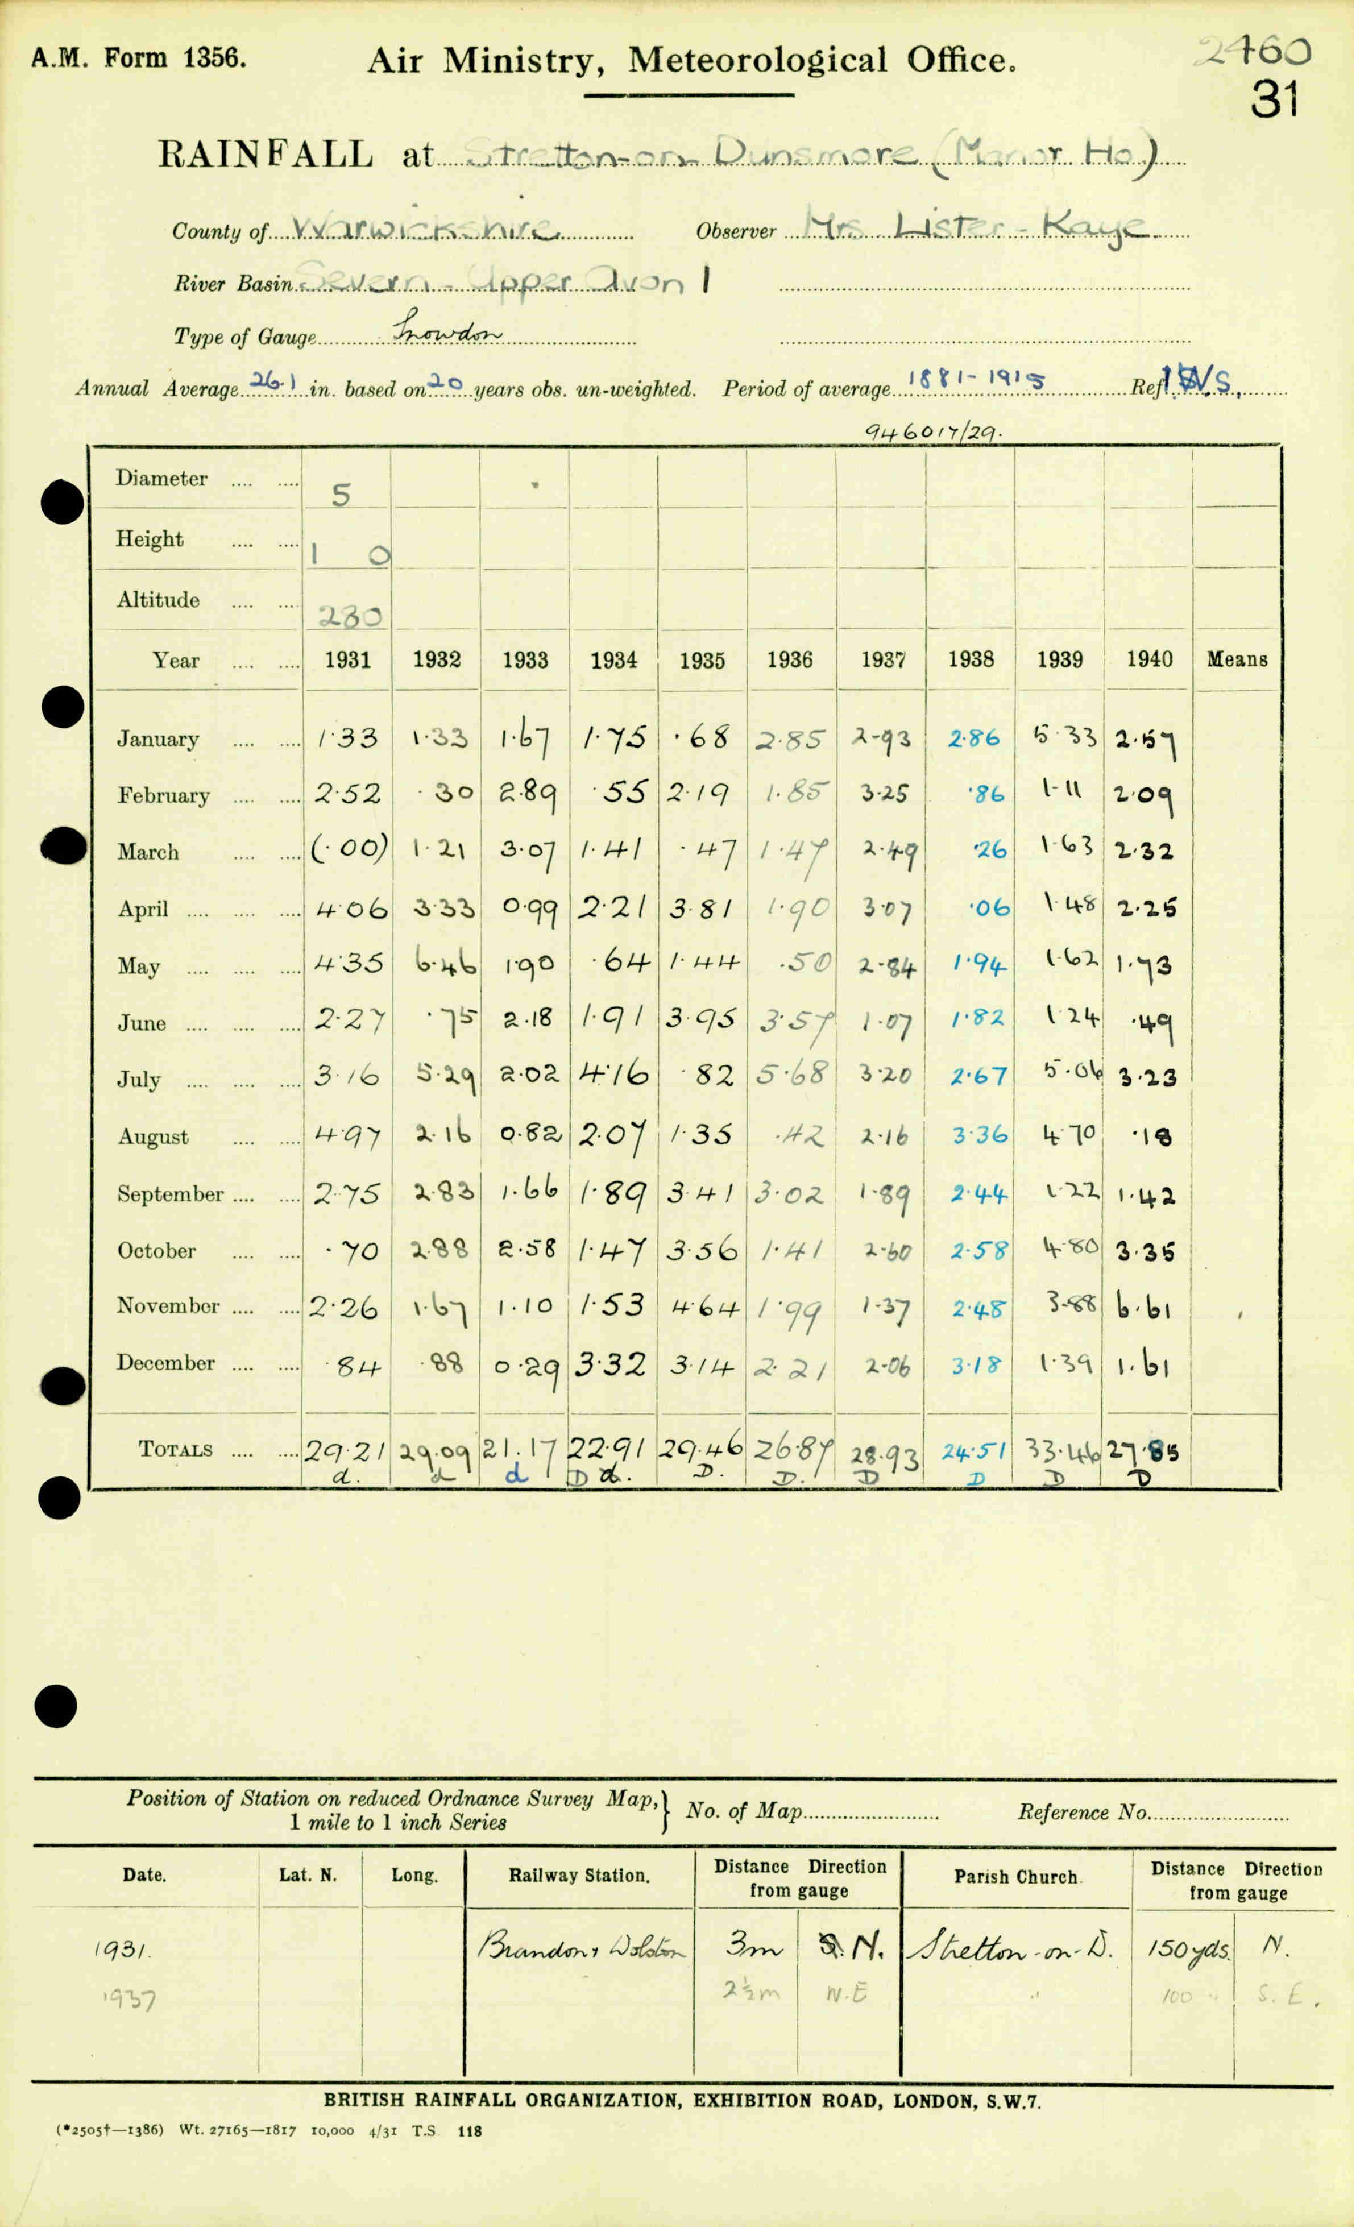 A.M. Form 1356.
Air Ministry, Meteorological Office.
2460
31
RAINFALL at Stretton-on-Dunsmore (Manor Ho.)
County of Warwickshire Observer Mrs Lister-Kaye
River Basin Severn - Upper Avon 1
Type of Gauge Snowdon
Annual Average 26.1 in. based on 20 years obs. un-weighted. Period of average 1881-1915 Ref
946017/29.
Diameter 5
Height 1 0
Altitude 280
Year 1931 1932 1933 1934 1935 1936 1937 1938 1939 1940 Means
January 1.33 1.33 1.67 1.75 .68 2.85 2.93 2.86 5.33 2.57
February 2.52 .30 2.89 .55 2.19 1.85 3.25 .86 1.11 2.09
March (.00) 1.21 3.07 1.41 .47 1.47 2.49 .26 1.63 2.32
April 4.06 3.33 0.99 2.21 3.81 1.90 3.07 .06 1.48 2.25
May 4.35 6.46 1.90 .64 1.44 .50 2.84 1.94 1.62 1.73
June 2.27 .75 2.18 1.91 3.95 3.57 1.07 1.82 1.24 .49
July 3.16 5.29 2.02 4.16 .82 5.68 3.20 2.67 5.06 3.23
August 4.97 2.16 0.82 2.07 1.35 .42 2.16 3.36 4.70 .18
September 2.75 2.83 1.66 1.89 3.41 3.02 1.89 2.44 1.22 1.42
October .70 2.88 2.58 1.47 3.56 1.41 2.60 2.58 4.80 3.35
November 2.26 1.67 1.10 1.53 4.64 1.99 1.37 2.48 3.88 6.61
December .84 .88 0.29 3.32 3.14 2.21 2.06 3.18 1.39 1.61
TOTALS 29.21 29.09 21.17 22.91 29.46 26.87 28.93 24.51 33.46 27.85
d. d d D d. D. D. D D D D
Position of Station on reduced Ordnance Survey Map, } No. of Map Reference No.
1 mile to 1 inch Series
Date. Lat. N. Long. Railway Station. Distance Direction from gauge Parish Church. Distance Direction from gauge
1931. Brandon & Wolston 3m N. Stretton-on-D. 150yds. N.
1937 2½m N.E " 100 " S.E.
BRITISH RAINFALL ORGANIZATION, EXHIBITION ROAD, LONDON, S.W.7.
(*2505†—1386) Wt. 27165—1817 10,000 4/31 T.S 118